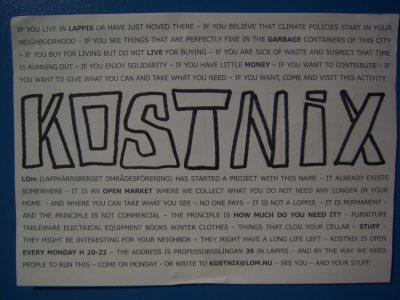 IF YOU LIVE IN LAPPIS OR HAVE JUST MOVED THERE - IF YOU BELIEVE THAT CLIMATE POLICIES START IN YOUR
NEIGHBOORHOOD - IF YOU SEE THINGS THAT ARE PERFECTLY FINE IN THE GARBAGE CONTAINERS OF THIS CITY
- IF YOU BUY FOR LIVING BUT DO NOT LIVE FOR BUYING - IF YOU ARE SICK OF WASTE AND SUSPECT THAT TIME
IS RUNNING OUT - IF YOU ENJOY SOLIDARITY - IF YOU HAVE LITTLE MONEY - IF YOU WANT TO CONTRIBUTE - IF
YOU WANT TO GIVE WHAT YOU CAN AND TAKE WHAT YOU NEED - IF YOU WANT, COME AND VISIT THIS ACTIVITY
KOSTNIX
LOm (LAPPKÄRRSBERGET OMRÅDESFÖRENING) HAS STARTED A PROJECT WITH THIS NAME - IT ALREADY EXISTS
SOMEWHERE - IT IS AN OPEN MARKET WHERE WE COLLECT WHAT YOU DO NOT NEED ANY LONGER IN YOUR
HOME - AND WHERE YOU CAN TAKE WHAT YOU SEE - NO ONE PAYS - IT IS NOT A LOPPIS - IT IS PERMANENT -
AND THE PRINCIPLE IS NOT COMMERCIAL - THE PRINCIPLE IS HOW MUCH DO YOU NEED IT? - FURNITURE
TABLEWARE ELECTRICAL EQUIPMENT BOOKS WINTER CLOTHES - THINGS THAT CLOG YOUR CELLAR - STUFF -
THEY MIGHT BE INTERESTING FOR YOUR NEIGHBOR - THEY MIGHT HAVE A LONG LIFE LEFT - KOSTNIX IS OPEN
EVERY MONDAY H 20-22 - THE ADDRESS IS PROFESSORSSLINGAN 39 IN LAPPIS - AND BY THE WAY WE NEED
PEOPLE TO RUN THIS - COME ON MONDAY - OR WRITE TO KOSTNIX@LOM.NU - SEE YOU - AND YOUR STUFF.